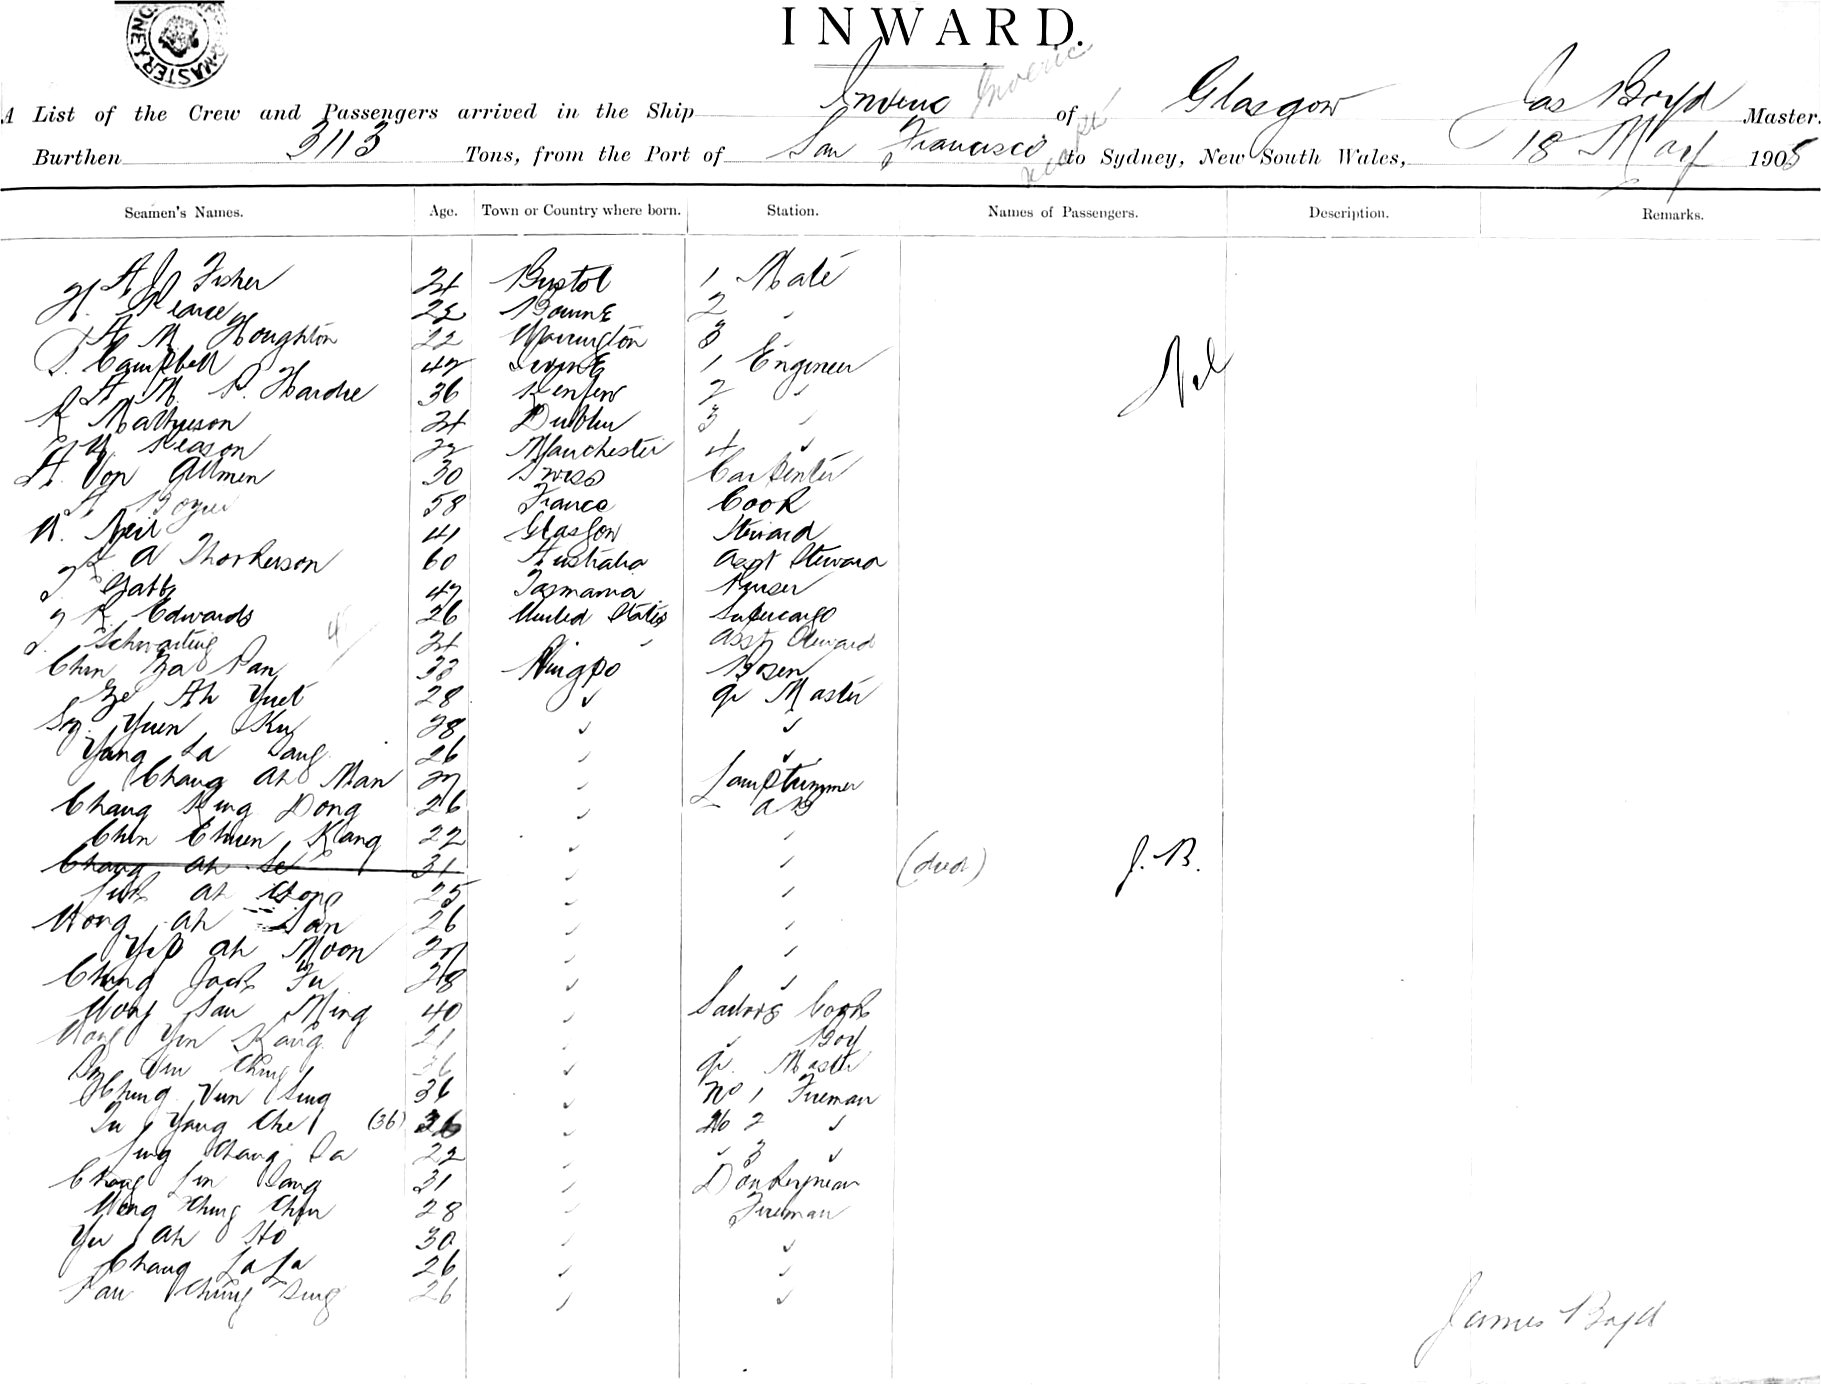 INWARD.
A List of the Crew and Passengers arrived in the Ship Inveric Inveric of Glasgow Jas Boyd Master.
Burthen 3113 Tons, from the Port of San Francisco to Sydney, New South Wales, 18 May 1905
Seamen's Names. Age. Town or Country where born. Station. Names of Passengers. Description. Remarks.
A J Fisher 34 Bristol 1 Mate
H. Pearce 22 2 "
A M Houghton 22 Warrington 3
J. Campbell 42 Irvine 1 Engineer
A M. P. Hardie 36 Renfrew 2 "
R Mathieson 34 Dublin 3 "
Reason 22 Manchester 4 "
A. Von Allmen 30 Swiss Carpenter
58 France Cook
W. Neil 41 Glasgow Steward
A Thorkerson 60 Australia Asst Steward
47 Tasmania Purser
R. Edwards 26 United States Supercargo
J. 24 " Asst Steward
Chin Za Pan 33 Ningpo Bosen
Ah Yuet 28 " Qr Master
Yuen 38 " "
Yang La 26 " "
Chang Ah Man 27 " Lamptrimmer
Chang King Dong 26 " A B
Chin Chuen Kang 22 " "
Chang Ah Se 31 " " (died) J. B.
Ah 25 " "
Wong Ah San 26 " "
Yep Ah Moon 27 " "
Ching Jack Fu 28 " "
Wong San Ming 40 " Sailors Cook
Wong Yin Kang 21 " " Boy
Ching 26 " Qr. Master
Ching Vun Sing 36 " No 1 Fireman
Yang Che (36) 36 " No 2 "
Chang 22 " " 3 "
Chang 31 " Donkeyman
Wong Ching Chin 28 " Fireman
Yu Ah Ho 30 " "
Chang La La 26 " "
Pau Ching Sing 26 " "
Nil
James Boyd